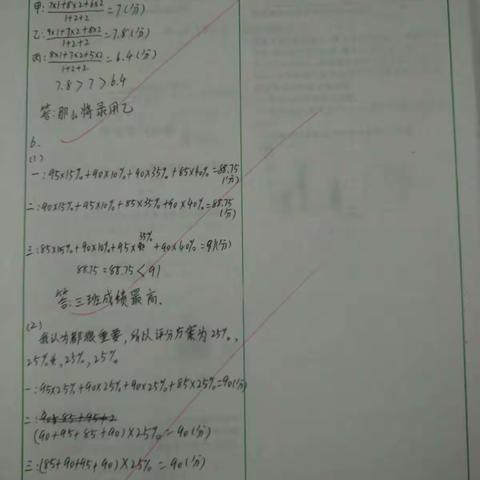 甲: (7×1+8×2+6×2)/(1+2+2) = 7(分)
乙: (9×1+7×2+8×2)/(1+2+2) = 7.8(分)
丙: (8×1+7×2+5×2)/(1+2+2) = 6.4(分)
7.8 > 7 > 6.4
答:那么将录用乙
6.
(1)
一: 95×15%+90×10%+90×35%+85×40%=88.75(分)
二: 90×15%+95×10%+85×35%+90×40%=88.75(分)
三: 85×15%+90×10%+95×35%+90×40%=91(分)
88.75=88.75<91
答:三班成绩最高.
(2)
我认为都很重要,所以评分方案为25%,
25%,25%,25%
一: 95×25%+90×25%+90×25%+85×25%=90(分)
二:
(90+95+85+90)×25%=90(分)
三:(85+90+95+90)×25%=90(分)